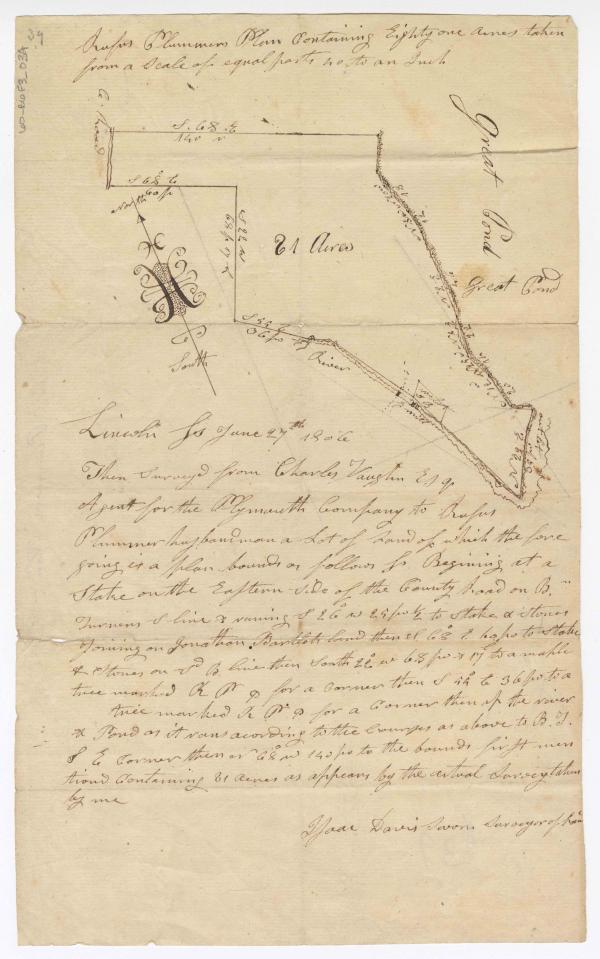 Rufus Plummers Plan Containing Eighty one Acres taken
from a Scale of equal parts 40 to an Inch
C. Road
S. 68 E
140
S 68 E
60 po
North
South
81 Acres
Great Pond
Great Pond
River
Lincoln Ss June 27th 1806
Then Surveyd from Charles Vaughn Esq
Agent for the Plymouth Company to Rufus
Plummer husbandman a Lot of Land of which the fore
going is a plan bounds as follows Ss Begining at a
Stake on the Eastern Side of the County Road on B.
Turners S line & runing S 26 W 25 po ½ to Stake & Stones
Joining on Jonathan Bartlets land then 68 E 60 po to Stake
& Stones on Sd B. line then South 22 W 68 po & 17 to a maple
tree marked R P for a Corner then S E 36 po to a
tree marked R P for a Corner then up the river
& Pond as it runs acording to the Courses as above to B. T.
S E Corner then 68 W 140 po to the bounds first men
tiond Containing 81 Acres as appears by the actual Survey taken
by me
Isaac Davis Sworn Surveyor of